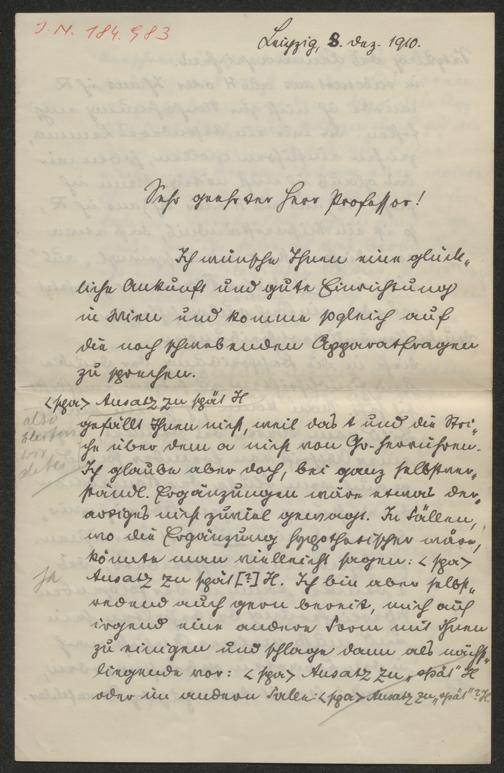 J. N. 184.983
Leipzig, 8. Dez. 1910.
Sehr geehrter Herr Professor!
Ich wünsche Ihnen eine glück-
liche Ankunft und gute Einrichtung
in Wien und komme sogleich auf
die noch schwebenden Apparatfragen
zu sprechen.
<spa> Ansatz zu spät H
gefällt Ihnen nicht, weil das t und die Stri-
che über dem a nicht von Go. herrühren.
Ich glaube aber doch, bei ganz selbstver-
ständl. Ergänzungen wäre etwas der-
artiges nicht zuviel gewagt. In Fällen,
wo die Ergänzung hypothetischer wäre,
könnte man vielleicht sagen: <spa>
Ansatz zu spät [?] H. Ich bin aber selbst-
redend auch gern bereit, mich auf
irgend eine andere Form mit Ihnen
zu einigen und schlage dann als nächst-
liegende vor: <spa> Ansatz zu „spät" H
oder im andern Falle: <spa> Ansatz zu „spät" ? H
also
ja